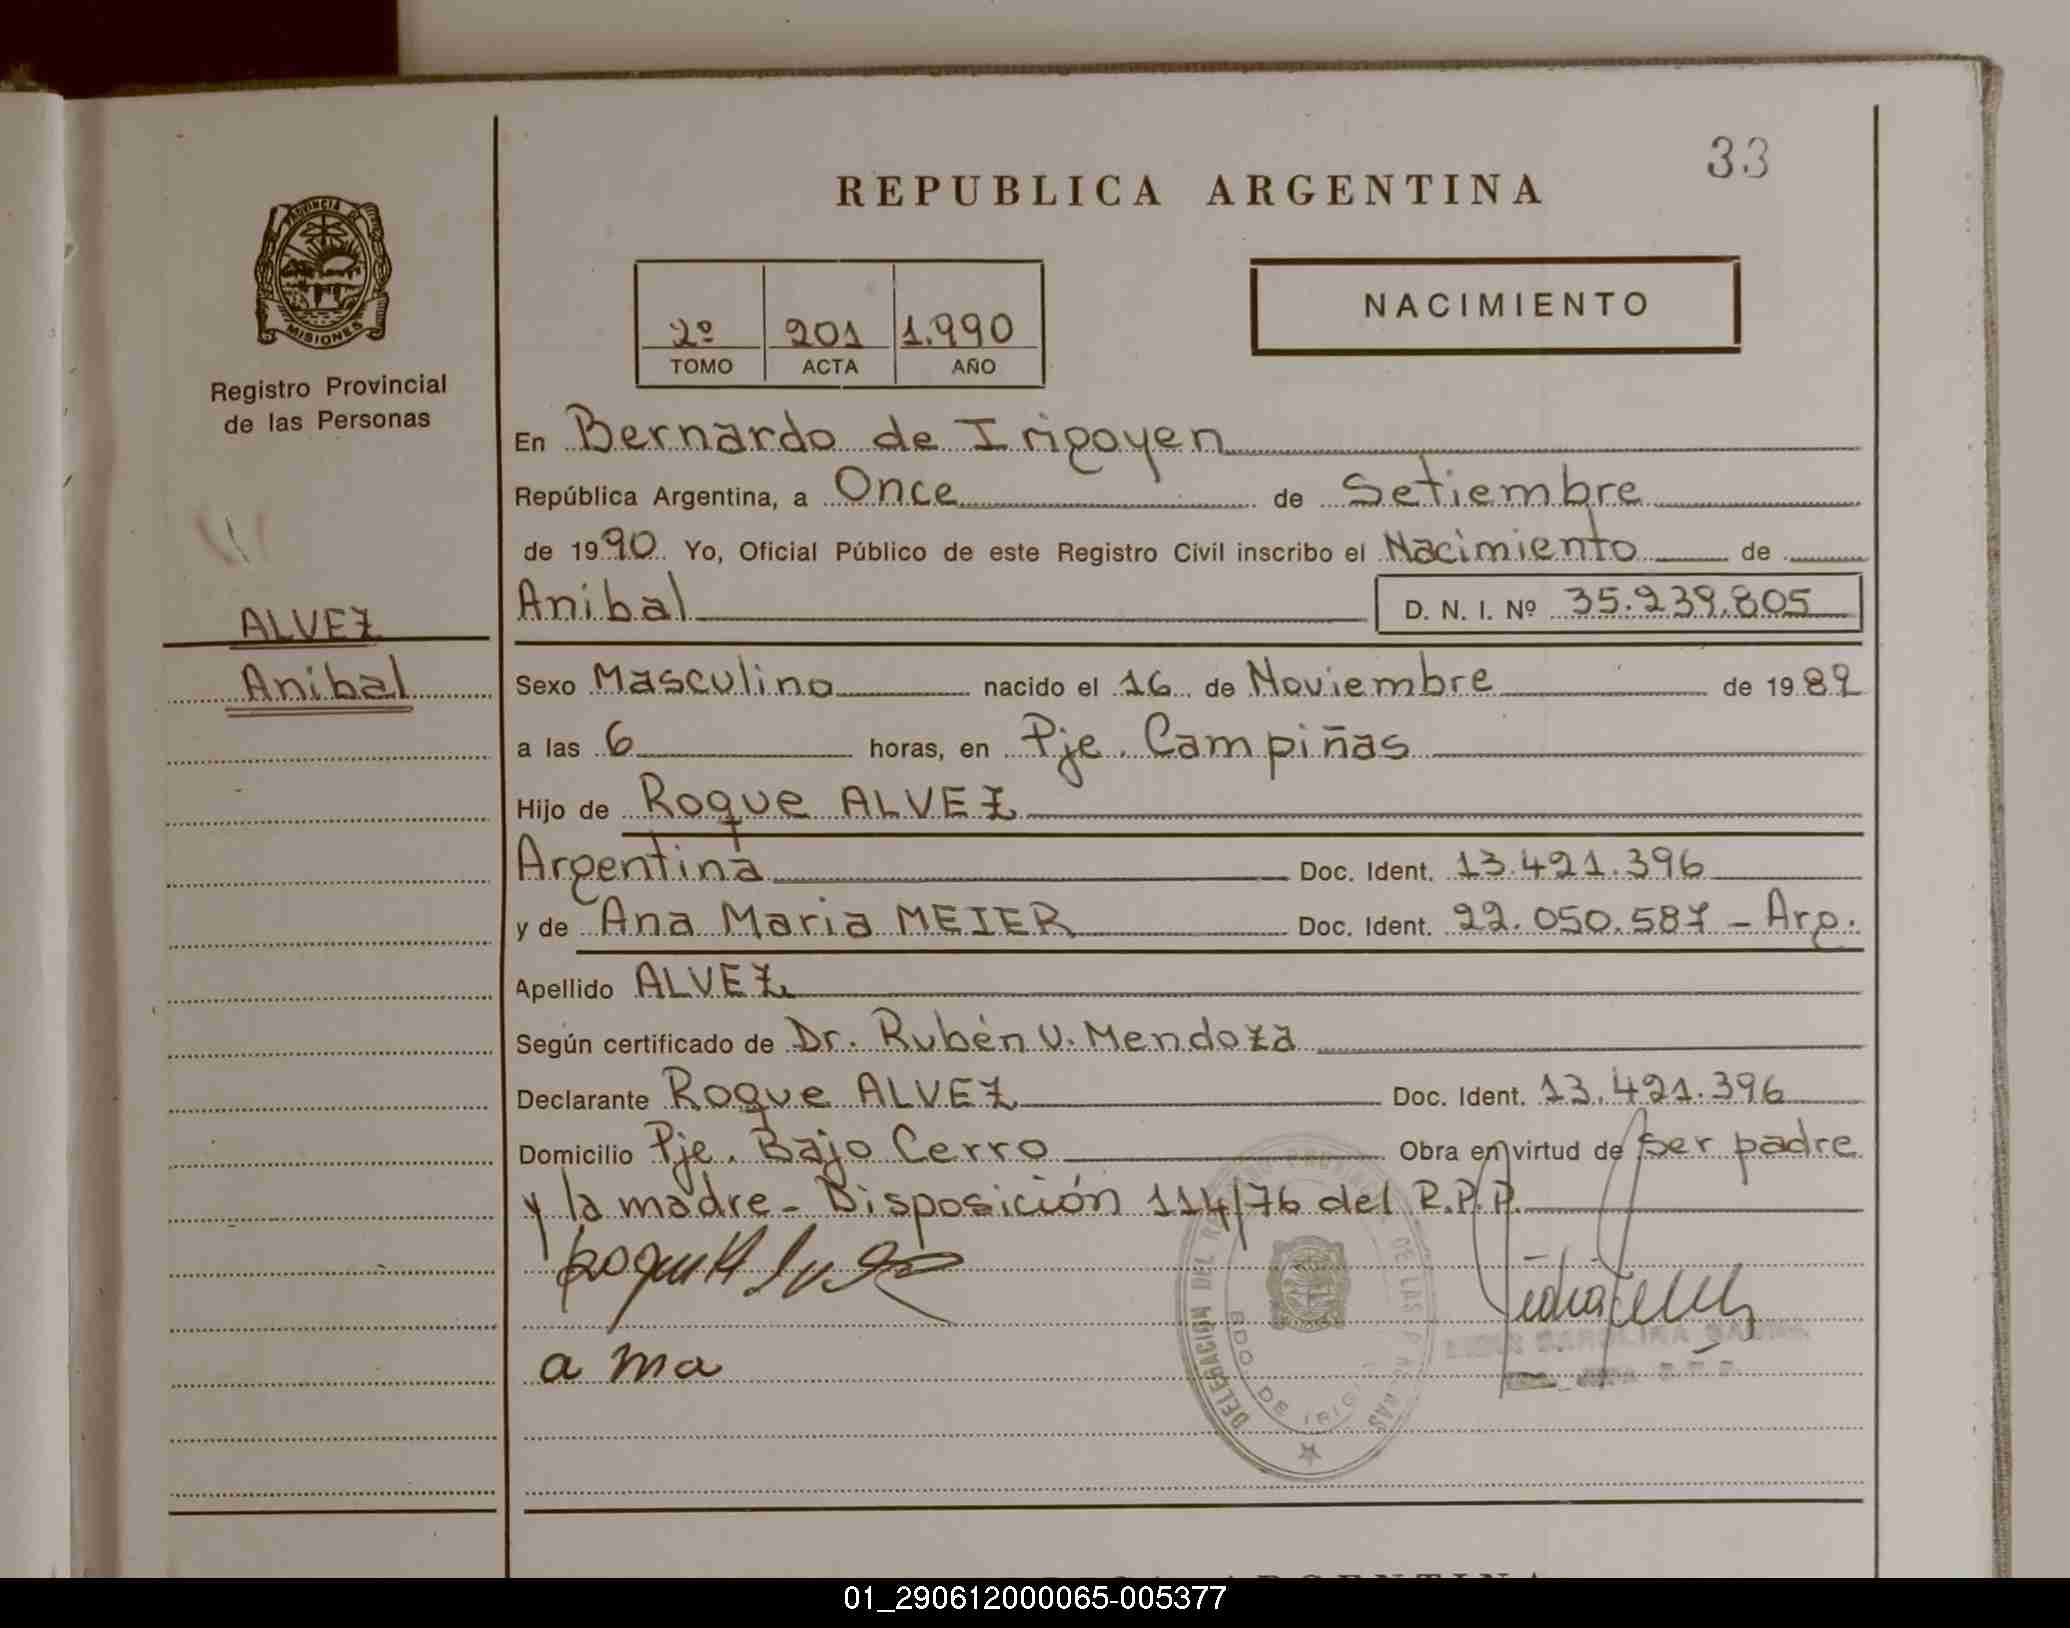 33
REPUBLICA ARGENTINA
PROVINCIA DE
MISIONES
Registro Provincial
de las Personas
2º 201 1.990
TOMO ACTA AÑO
NACIMIENTO
En Bernardo de Irigoyen
República Argentina, a Once de Setiembre
de 1990 Yo, Oficial Público de este Registro Civil inscribo el Nacimiento de
Anibal D. N. I. Nº 35.239.805
ALVEZ
Anibal
Sexo Masculino nacido el 16 de Noviembre de 1989
a las 6 horas, en Pje. Campiñas
Hijo de Roque ALVEZ
Argentina Doc. Ident. 13.421.396
y de Ana Maria MEIER Doc. Ident. 22.050.587 - Arg.
Apellido ALVEZ
Según certificado de Dr. Rubén V. Mendoza
Declarante Roque ALVEZ Doc. Ident. 13.421.396
Domicilio Pje. Bajo Cerro Obra en virtud de ser padre
y la madre - Disposición 114/76 del R.P.P.
a ma
DELEGACION DEL DE LAS
BDO DE IRIG
01_290612000065-005377